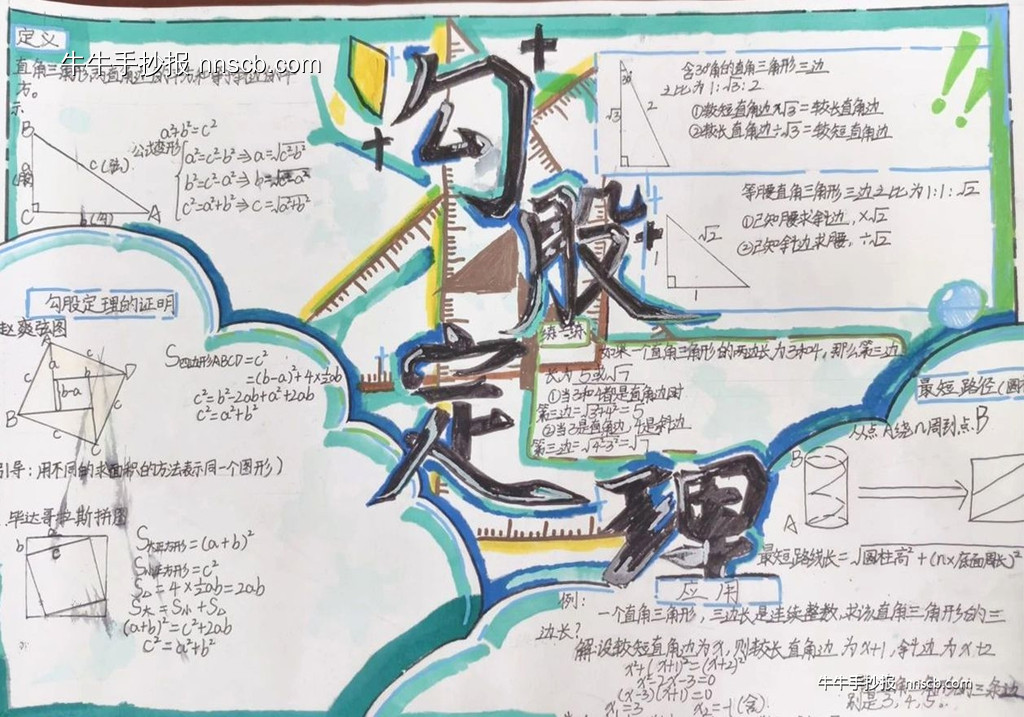 定义
牛牛手抄报 nnscb.com
方。
B
a
c(弦)
C
b
A
a²+b²=c²
公式变形
a²=c²-b²⇒a=√c²-b²
b²=c²-a²⇒b=√c²-a²
c²=a²+b²⇒c=√a²+b²
勾股定理
30°
√3
2
1
含30°角的直角三角形三边
之比为1:√3:2
①较短直角边×√3=较长直角边
②较长直角边÷√3=较短直角边
等腰直角三角形三边之比为1:1:√2
①已知腰求斜边,×√2
②已知斜边求腰,÷√2
1
√2
1
勾股定理的证明
赵爽弦图
S四边形ABCD=c²
=(b-a)²+4×½ab
c²=b²-2ab+a²+2ab
c²=a²+b²
A
B
C
D
a
b
c
b-a
引导:用不同的求面积的方法表示同一个图形)
毕达哥拉斯拼图
S大正方形=(a+b)²
S小正方形=c²
S△=4×½ab=2ab
S大=S小+S△
(a+b)²=c²+2ab
c²=a²+b²
练一练
如果一个直角三角形的两边长为3和4,那么第三边
长为5或√7
①当3和4都是直角边时
第三边=√3²+4²=5
②当3是直角边,4是斜边
第三边=√4²-3²=√7
最短路径(圆
从点A绕n周到点B
B
A
最短路线长=√圆柱高²+(n×底面周长)²
应用
例:
一个直角三角形,三边长是连续整数,求该直角三角形的三
边长?
解:设较短直角边为x,则较长直角边为x+1,斜边为x+2
x²+(x+1)²=(x+2)²
x²-2x-3=0
(x-3)(x+1)=0
x₁=3 x₂=-1(舍)
牛牛手抄报 nnscb.com
的三条边
别是3,4,5。